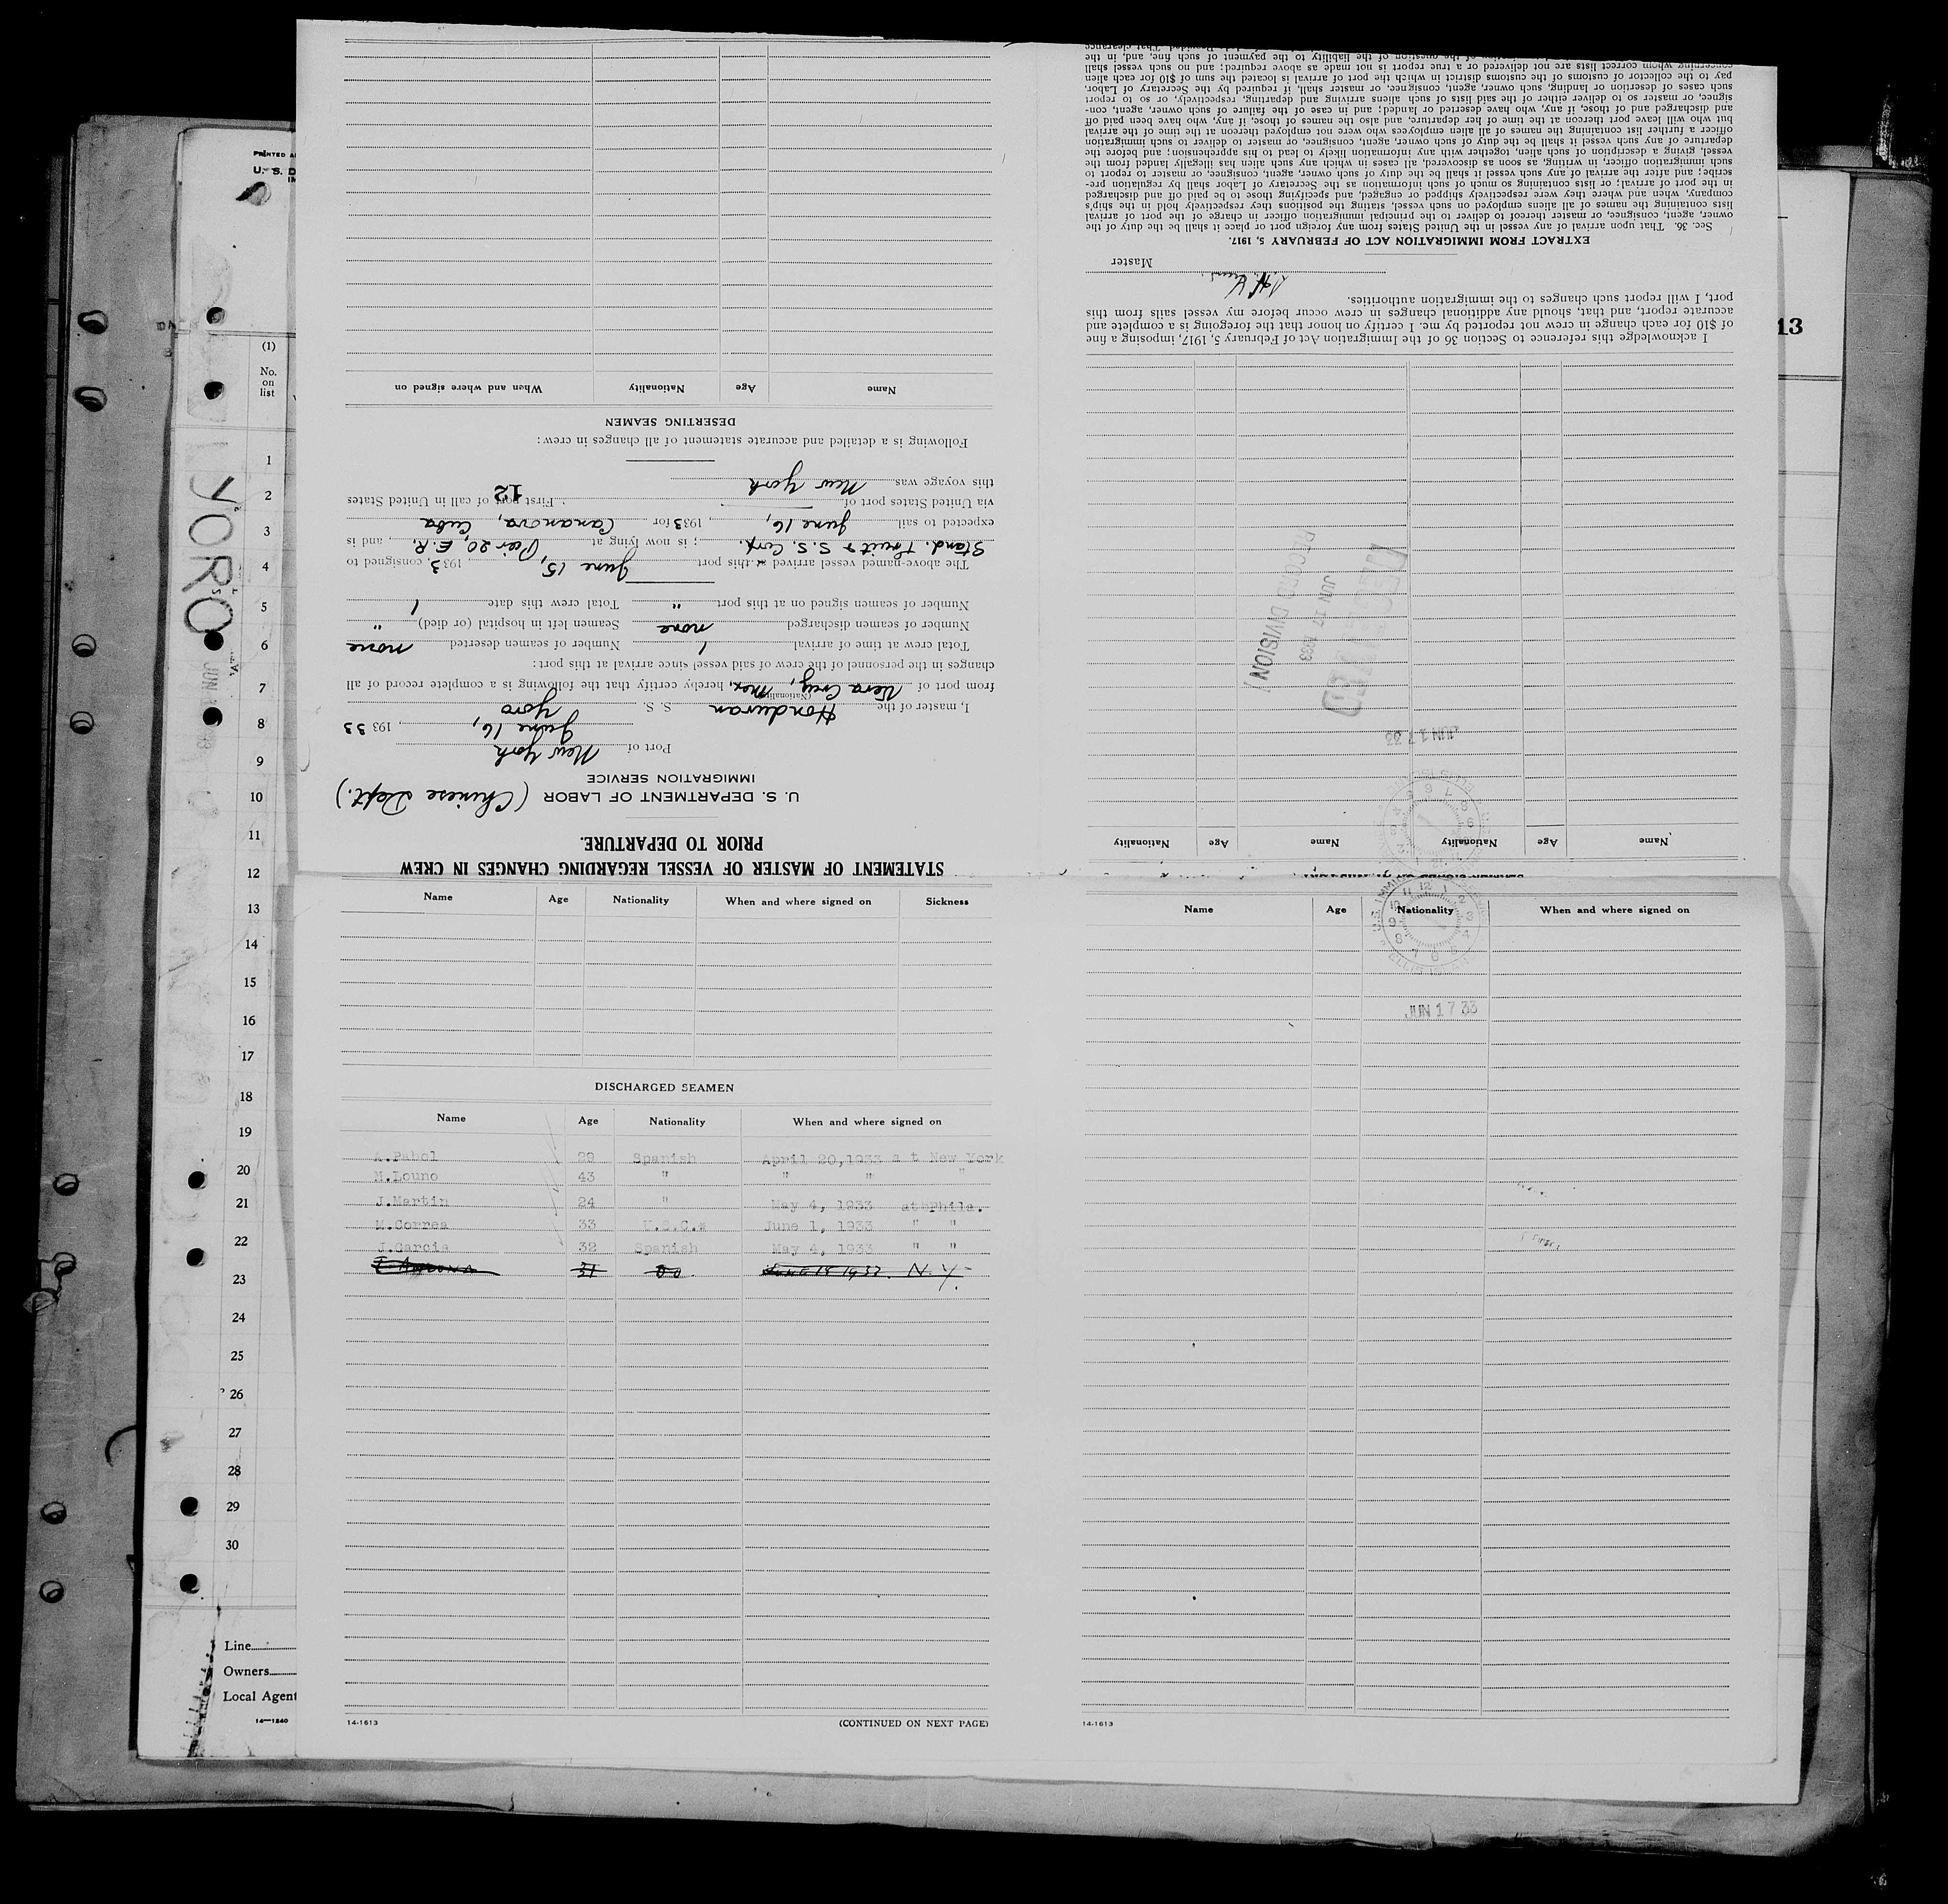 PRINTED
U. S. D
(1)
No.
on
list
1
2
3
4
5
6
7
8
9
10
11
12
13
14
15
16
17
18
19
20
21
22
23
24
25
26
27
28
29
30
Line
Owners
Local Agent
14—1240
YORO
JUN 1
13
STATEMENT OF MASTER OF VESSEL REGARDING CHANGES IN CREW
PRIOR TO DEPARTURE.
U. S. DEPARTMENT OF LABOR (Chinese Dept.)
IMMIGRATION SERVICE
Port of New York
June 16, , 193 33
I, master of the Honduran S. S. Yoro
(Nationality)
from port of Vera Cruz, Mex, hereby certify that the following is a complete record of all
changes in the personnel of the crew of said vessel since arrival at this port:
Total crew at time of arrival 1 Number of seamen deserted none
Number of seamen discharged none Seamen left in hospital (or died) "
Number of seamen signed on at this port " Total crew this date 1
The above-named vessel arrived at this port June 15, 1933, consigned to
Stand. Fruit & S.S. Corp. ; is now lying at Pier 20, E.R. , and is
expected to sail June 16, , 1933 for Cananova, Cuba
via United States port of . First port of call in United States
12
this voyage was New York
Following is a detailed and accurate statement of all changes in crew:
DESERTING SEAMEN
Name Age Nationality When and where signed on
Name Age Nationality Name Age Nationality
JUN 17 33
RECEIVED
JUN 17 1933
RECORD DIVISION
I acknowledge this reference to Section 36 of the Immigration Act of February 5, 1917, imposing a fine
of $10 for each change in crew not reported by me. I certify on honor that the foregoing is a complete and
accurate report, and that, should any additional changes in crew occur before my vessel sails from this
port, I will report such changes to the immigration authorities.
Master
EXTRACT FROM IMMIGRATION ACT OF FEBRUARY 5, 1917.
Sec. 36. That upon arrival of any vessel in the United States from any foreign port or place it shall be the duty of the
owner, agent, consignee, or master thereof to deliver to the principal immigration officer in charge of the port of arrival
lists containing the names of all aliens employed on such vessel, stating the positions they respectively hold in the ship's
company, when and where they were respectively shipped or engaged, and specifying those to be paid off and discharged
in the port of arrival; or lists containing so much of such information as the Secretary of Labor shall by regulation pre-
scribe; and after the arrival of any such vessel it shall be the duty of such owner, agent, consignee, or master to report to
such immigration officer, in writing, as soon as discovered, all cases in which any such alien has illegally landed from the
vessel, giving a description of such alien, together with any information likely to lead to his apprehension; and before the
departure of any such vessel it shall be the duty of such owner, agent, consignee, or master to deliver to such immigration
officer a further list containing the names of all alien employees who were not employed thereon at the time of the arrival
but who will leave port thereon at the time of her departure, and also the names of those, if any, who have been paid off
and discharged and of those, if any, who have deserted or landed; and in case of the failure of such owner, agent, con-
signee, or master so to deliver either of the said lists of such aliens arriving and departing, respectively, or so to report
such cases of desertion or landing, such owner, agent, consignee, or master shall, if required by the Secretary of Labor,
pay to the collector of customs of the customs district in which the port of arrival is located the sum of $10 for each alien
concerning whom correct lists are not delivered or a true report is not made as above required; and no such vessel shall
of the question of the liability to the payment of such fine, and, in the
Name Age Nationality When and where signed on Sickness
DISCHARGED SEAMEN
Name Age Nationality When and where signed on
A.Pabol 29 Spanish April 20,1933 a t New York
M.Louno 43 " " " "
J.Martin 24 " May 4, 1933 atbPhila.
M.Correa 33 U.S.C.* June 1, 1933 " "
J.Garcia 32 Spanish May 4, 1933 " "
31 Do. N.Y.
14-1613 (CONTINUED ON NEXT PAGE)
Name Age Nationality When and where signed on
JUN 17 33
14-1613